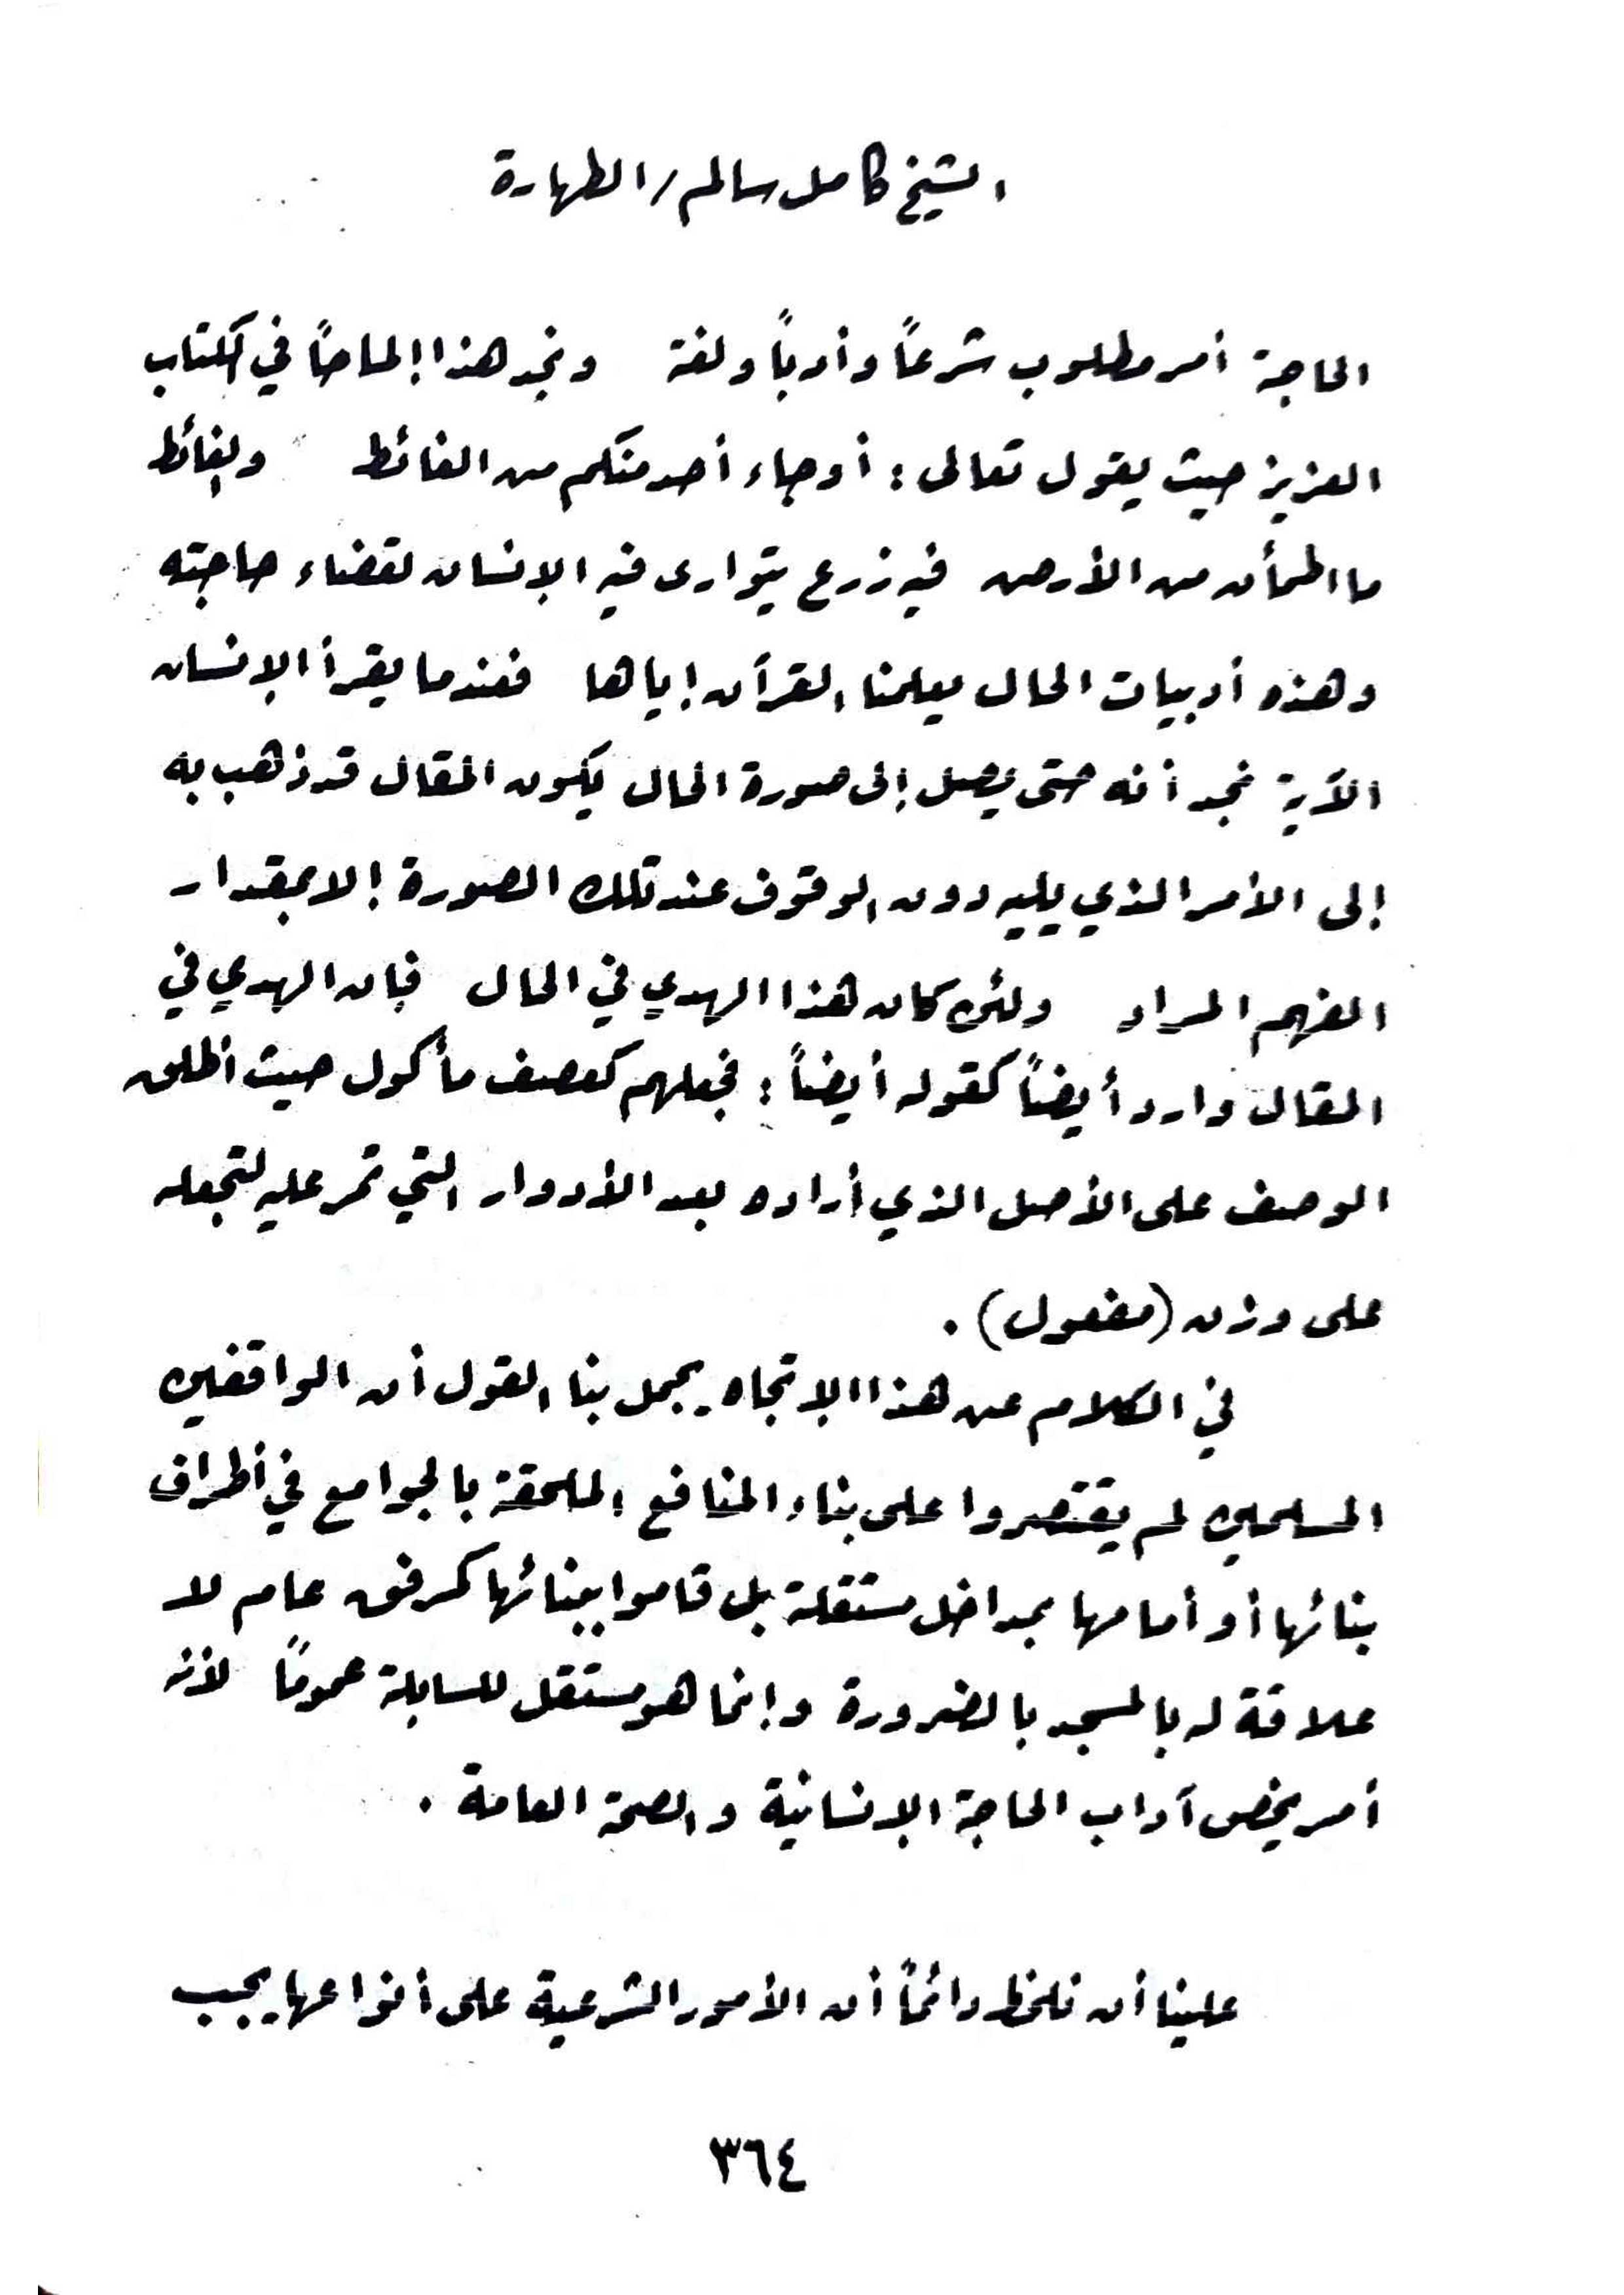 الشيخ كامل سالم / الطهارة
الحاجة أمر مطلوب شرعاً وأدباً ولغة ونجد هذا إلماحاً في الكتاب
العزيز حيث يقول تعالى : أوجاء أحد منكم من الغائط والغائط
ما اطمأن من الأرض فيه زرع يتوارى فيه الإنسان لقضاء حاجته
وهذه أدبيات الحال يعلمنا القرآن إياها فعندما يقرأ الإنسان
الآية نجد أنه حتى يصل إلى صورة الحال يكون المقال قد ذهب به
إلى الأمر الذي يليه دون الوقوف عند تلك الصورة إلا بمقدار
الفهم المراد ولئن كان هذا الهدي في الحال فإن الهدي في
المقال وارد أيضاً كقوله أيضاً : فجعلهم كعصف مأكول حيث أطلق
الوصف على الأصل الذي أراده بعد الأدوار التي تمر عليه لتجعله
على وزن (مفعول) .
في الكلام عن هذا الإتجاه يجمل بنا القول أن الواقفين
المسلمين لم يقتصروا على بناء المنافع الملحقة بالجوامع في أطراف
بنائها أو أمامها بمداخل مستقلة بل قاموا ببنائها كمرفق عام لا
علاقة له بالمسجد بالضرورة وإنما هو مستقل للسابلة عموماً لأنه
أمر يخص آداب الحاجة الإنسانية والصحة العامة .
علينا أن نلحظ دائماً أن الأمور الشرعية على أنواعها يجب
٣٦٤